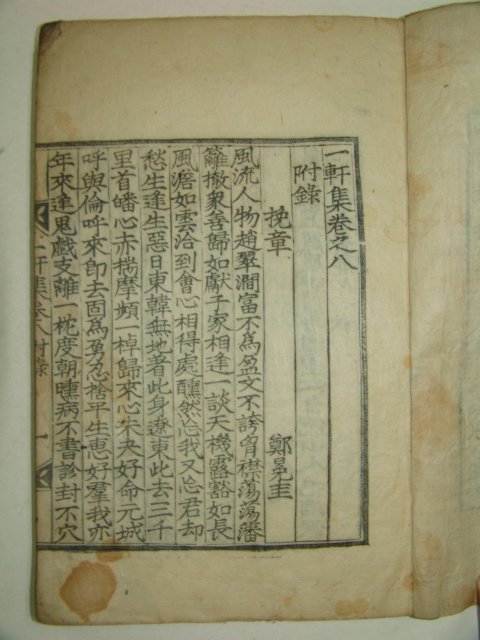 一軒集卷之八
附錄
挽章 鄭冕圭
風流人物趙翠澗富不爲盈文不誇胷襟蕩蕩藩
籬撤衆善歸如獻子家相逢一談天機露豁如長
風澹如雲洽到會心相得處醺然忘我又忘君却
愁生逢生惡日東韓無地著此身遼東此去三千
里首皤心赤揣摩頻一棹歸來心未夬好命元城
呼與倫呼來卽去固爲勇忍捨平生惠好羣我亦
年來逢鬼戲支離一枕度朝曛病不書診封不穴
一軒集卷八 附錄 一